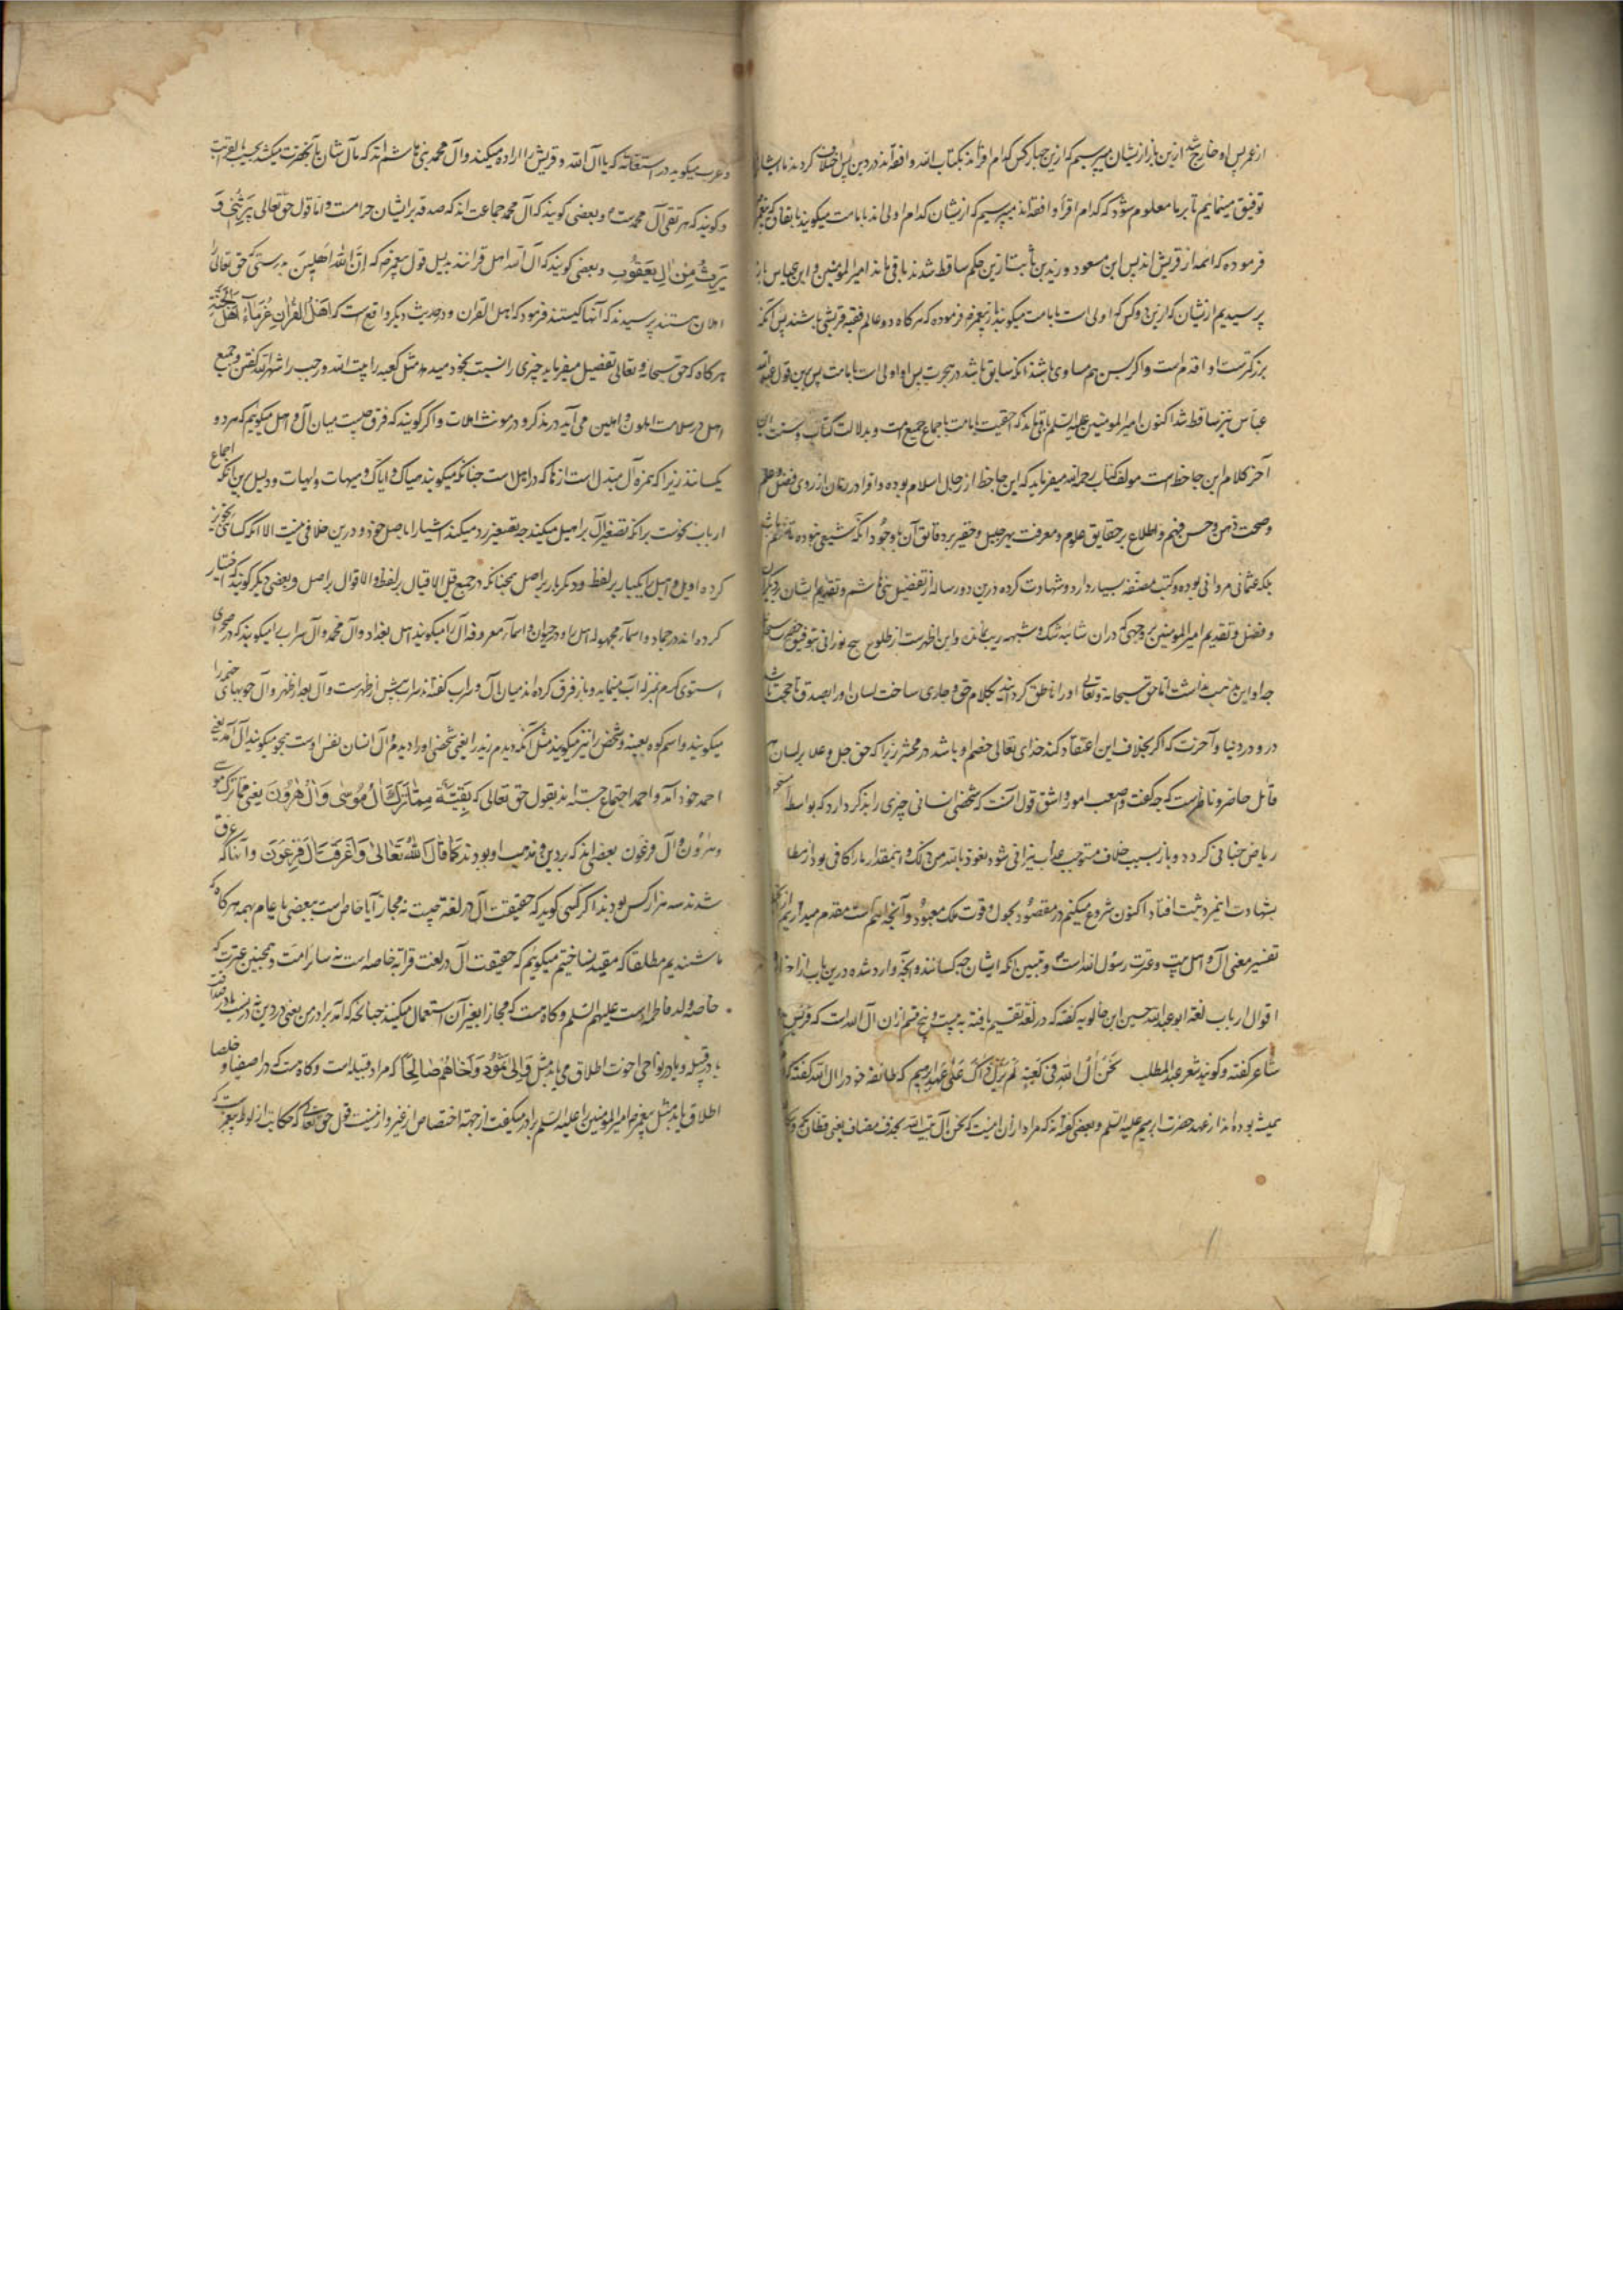 از عمر پس او خارج شد ازین باز ازیشان میپرسیم که ازین چهار کس کدام اقرأند بکتاب الله و افقه‌اند در دین پس اختلاف کردند ما ایشان
توفیق مینمائیم تا بر ما معلوم شود که کدام اقرأ و افقه‌اند میپرسیم که ازیشان کدام اولی‌اند بامامت میگویند باتفاق که پیغمبر
فرموده که ائمه از قریش‌اند پس ابن مسعود و زید بن ثابت ازین حکم ساقط شدند باقی ماند امیرالمومنین و ابن عباس باز
پرسیدیم ازیشان که ازین دو کس که اولی است بامامت میگویند از پیغمبر ص فرموده که هرکاه دو عالم فقیه قریشی باشند پس آنکه
بزرکترست او اقدم است و اکر بسن هم مساوی باشند آنکه سابق باشد در هجرت پس او اولی است بامامت پس برین قول عبدالله
عباس نیز ساقط شد اکنون امیرالمومنین علیه السلم باقی ماند که احقیت بامامت باجماع جمیع امت و بدلالت کتاب و سنت
آخر کلام ابن جاحظ است مولف کتاب رحمه الله میفرماید که ابن جاحظ از رجال اسلام بوده و افراد زمان از روی فضل و علم
و صحت ذهن و حسن فهم و اطلاع بر حقایق علوم و معرفت بهر جلیل و حقیر بر دقایق آن با وجود آنکه شیعی نبوده تا متهم باشد
بلکه عثمانی مروانی بوده و کتب مصنفه بسیار دارد و شهادت کرده درین دو رساله از تفضیل بنی هاشم و تقدیم ایشان بر دیکران
و فضل و تقدیم امیرالمومنین بر وجهی که دران شائبه شک و شبهه ریب نماند و این اظهرست از طلوع صبح نورانی بتوفیق
چه او این مذهب نداشت اما حق سبحانه و تعالی او را ناطق کردانید بکلام حق و جاری ساخت لسان او را بصدق تا حجت باشد
درو در دنیا و آخرت که اکر بخلاف این اعتقاد کند خدای تعالی خصم او باشد در محشر زیرا که حق جل و علا بر لسان هر
قائل حاضر و ناظرست که چه کفت و اصعب امور و اشق قول آنست که شخصی لسانی چیزی را بذکر دارد که بواسطه آن
ریاض جنانی کردد و باز بسبب خلاف مستوجب عذاب نیرانی شود نعوذ بالله من ذلک و اینمقدار ما را کافی بود از مطا
بشهادت اینمرد ثبت افتاد اکنون شروع میکنیم در مقصود بحول و قوت ملک معبود و آنچه اهم است مقدم میداریم از
تفسیر معنی آل و اهل بیت و عترت رسول الله است و تبیین آنکه ایشان چه کسانند و آنچه وارد شده درین باب از اخبار و
اقوال ارباب لغة ابو عبدالله حسین ابن خالویه کفته که در لغة تقسیم یافته به بیست و پنج قسم ازان آل الله است که قریش
شاعر کفته و کویند شعر عبدالمطلب نحن آل الله فی کعبته لم یزل ذاک علی عهد ابرهیم که طائفه خود را آل الله کفته که
همیشه بوده‌اند از عهد حضرت ابرهیم علیه السلم و بعضی کفته‌اند که مراد ازان اینست که نحن آل بیت الله بحذف مضاف یعنی
و عرب میکوید در استغاثه که یا آل الله و قریش را اراده میکنند و آل محمد بنی هاشم‌اند که مآل شان بآنحضرت میکشد بحسب القرابت
و کویند که هر تقی آل محمدست و بعضی کویند که آل محمد جماعت‌اند که صدقه بر ایشان حرامست و اما قول حق تعالی یَرِثُنِی وَ
یَرِثُ مِنْ آلِ یَعْقُوبَ و بعضی کویند که آل الله اهل قرانند بدلیل قول پیغمبر ص که ان الله اهلین بدرستی که حق تعالی را
اهلان هستند پرسیدند که آنها کیستند فرمود که اهل القران و در حدیث دیکر واقع است که اَهْلُ الْقُرْآنِ عُرَفَاءُ اَهْلِ الْجَنَّةِ
هرکاه که حق سبحانه و تعالی تفضیل میفرماید چیزی را نسبت بخود میدهد مثل کعبه را بیت الله و رجب را شهر الله کفتن و جمع
اهل در سلامت اهلون و اهلین می آید در مذکر و در مونث اهلات و اکر کویند که فرق چیست میان آل و اهل میکوئیم که هر دو
یکسانند زیرا که همزه آل مبدل است از ها که در اهل است چنانکه میکویند هیاک و ایاک و هیهات و ایهات و دلیل برین آنکه اجماع
ارباب نحوست برانکه تصغیر آل بر اهیل میکنند چه تصغیر رد میکند اشیا را باصل خود و درین خلافی نیست الا آنکه کسائی تجویز
کرده اویل و اهیل را یکبار بر لفظ و دیکر بار بر اصل همچنانکه در جمع قیل الاقیال بر لفظ و الاقوال بر اصل و بعضی دیکر کویند که اختیار
کرده‌اند در جماد و اسمآء مجهوله اهل را و در حیوان و اسمآء معروفه آل را میکویند اهل بغداد و آل محمد و آل سراب را میکویند که در صحرای
استوی کرم بمنزله آب مینماید و باز فرق کرده‌اند میان آل و سراب کفته‌اند سراب پیش از ظهرست و آل بعد از ظهر و آل چوبهای خیمه را
میکویند و اسم کوه بعینه و شخص را نیز میکویند مثل آنکه دیدم زید را یعنی شخص او را دیدم و آل انسان نفس اوست همچو میکویند آل احمد یعنی
احمد خود آمد و احمد احتجاج جسته‌اند بقول حق تعالی که بَقِیَّةٌ مِمَّا تَرَکَ آلُ مُوسَی وَ آلُ هَرُونَ یعنی مما ترک موسی
و هرون و آل فرعون بعضی‌اند که بر دین و مذهب او بودند کَمَا قَالَ اللهُ تَعَالَی وَ اَغْرَقْنَا آلَ فِرْعَوْنَ و آنها که غرق
شدند سه هزار کس بودند اکر کسی کوید که حقیقت آل در لغة چیست نه مجاز آیا خاص است ببعضی یا عام بهمه هرکاه که
باشندیم مطلقا که مقید نساختیم میکویم که حقیقت آل در لغت قرابه خاصه است نه سائر امت و همچنین عترت که
خاصه ولد فاطمه است علیهم السلم و کاه هست که مجازا بغیر آن استعمال میکنند چنانچه که آمد برادر من یعنی در دین نه در نسب یا در صداقت
یا در قبیله و یا در نواحی اخوت اطلاق می یابد مثل وَ اِلَی ثَمُودَ اَخَاهُمْ صَالِحًا که مراد قبیله است و کاه هست که در اصفیا و خلصا
اطلاق یابد مثل پیغمبر ص امیرالمومنین را علیه السلم برادر میکفت از جهة اختصاص از غیر و ازینست قول حق تعالی که حکایت از لوط پیغمبرست که